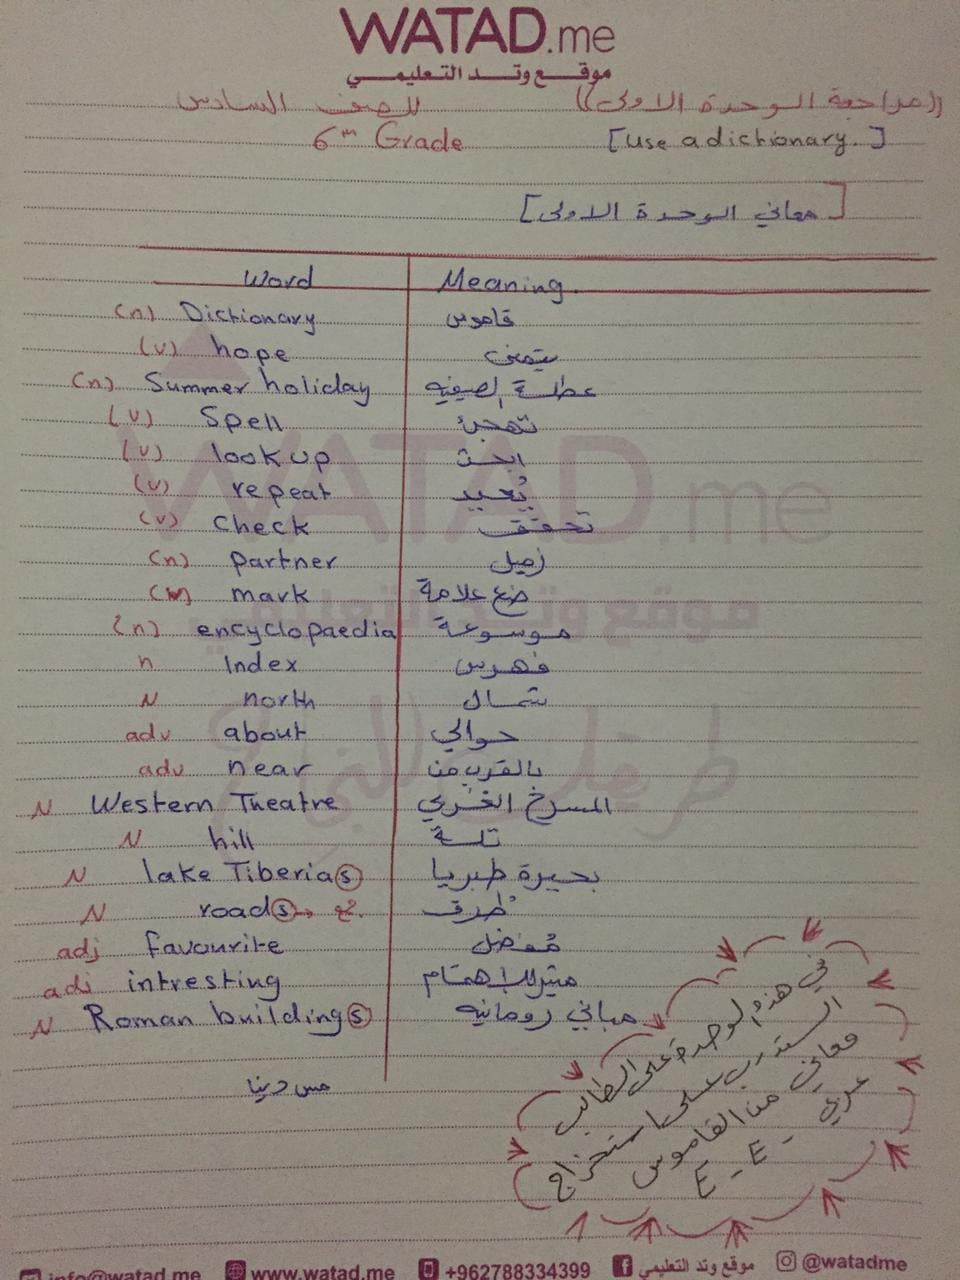 WATAD.me
موقع وتد التعليمي
((مراجعة الوحدة الاولى)) للصف السادس
6th Grade [use a dictionary.]
[معاني الوحدة الاولى]
Word Meaning.
(n) Dictionary قاموس
(v) hope يتمنى
(n) Summer holiday عطلة الصيفيه
(v) Spell تهجئ
(v) look up ابحث
(v) repeat يُعيد
(v) check تحقق
(n) partner زميل
mark ضع علامة
(n) encyclopaedia موسوعة
n Index فهرس
N north شمال
adv about حوالي
adv near بالقرب من
N Western Theatre المسرح الغربي
N hill تلة
N lake Tiberias بحيرة طبريا
N roads → جمع طرق
adj favourite مُفضل
adj intresting مثير للاهتمام
N Roman buildings مباني رومانيه
مس دينا
في هذه الوحدة على الطالب
التدرب على استخراج
معاني من القاموس
عربي - E - E
WATAD.me
موقع وتد التعليمي
طريقك للنجاح
info@watad.me www.watad.me +962788334399 موقع وتد التعليمي @watadme